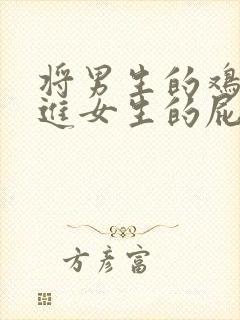 将男生的鸡
进女生的屁
方彦富